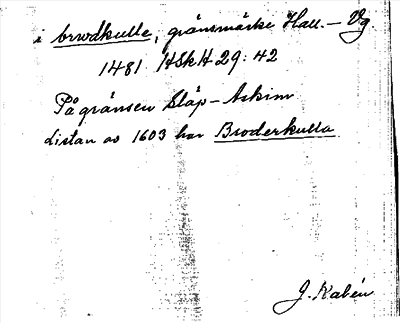 i brwdkulle, gränsmärke Hall. – Vg.
1481 HSkH 29: 42
På gränsen Släp – Askim
Listan av 1603 har Broderkulla
J. Kalén